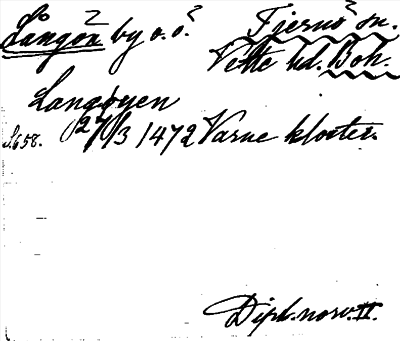 Långön by o. ö. Tjernö sn.
Vette hd. Boh.
Langøyen
S. 658. 27/3 1472 Varne kloster.
Dipl. norv. II.